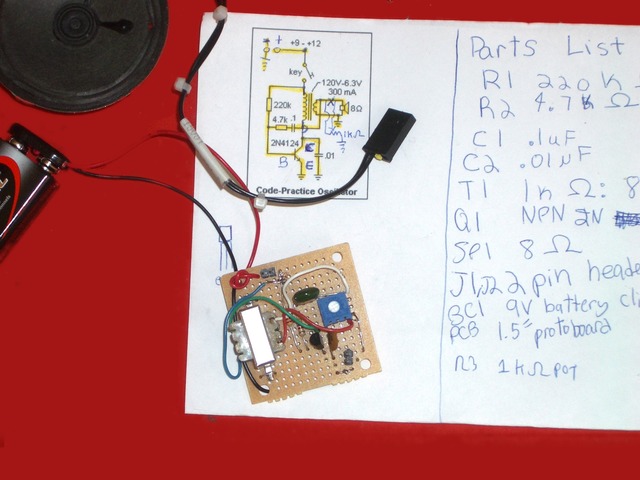 +9 - +12
key
120V-6.3V
300 mA
8Ω
220k
4.7k .1
1KΩ
2N4124
B
E
.01
Code-Practice Oscillator
Parts List
R1 220k
R2 4.7k Ω
C1 .1uF
C2 .01uF
T1 1k Ω: 8
Q1 NPN 2N
SP1 8 Ω
J1,J2 2 pin heade
BC1 9V battery cli
PCB 1.5" protoboard
R3 1KΩ POT